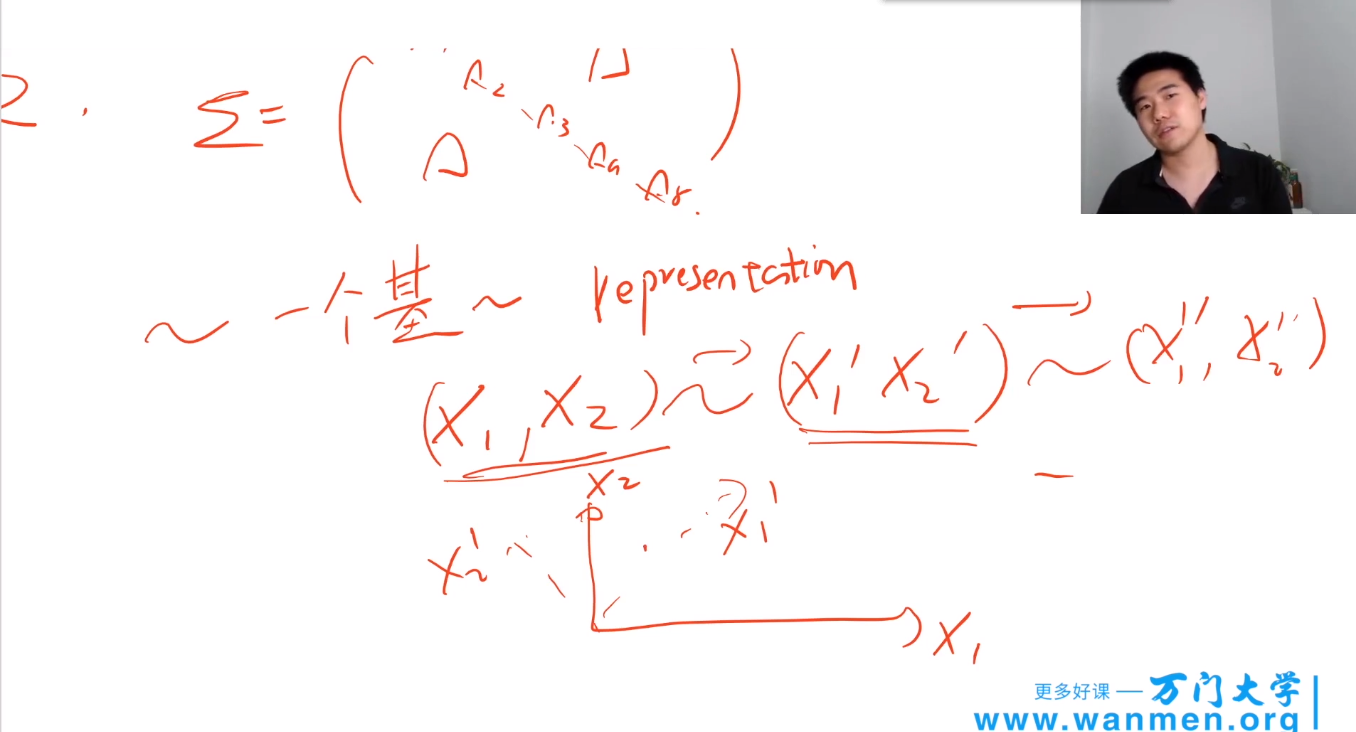 2. Σ=
~ 一个基 ~ representation
(X₁, X₂) ~ (X₁' X₂') ~ (X₁'', X₂'')
X₂
X₂' X₁'
X₁
更多好课 — 万门大学
www.wanmen.org